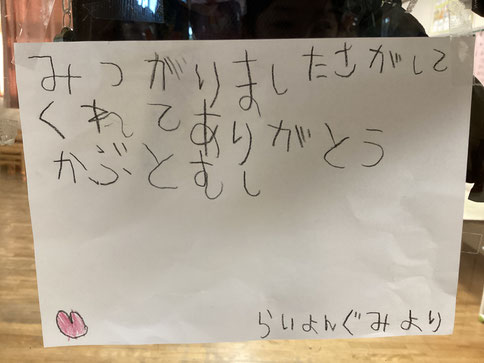 みつがりましたさがして
くれてありがとう
かぶとむし
らいよんぐみより